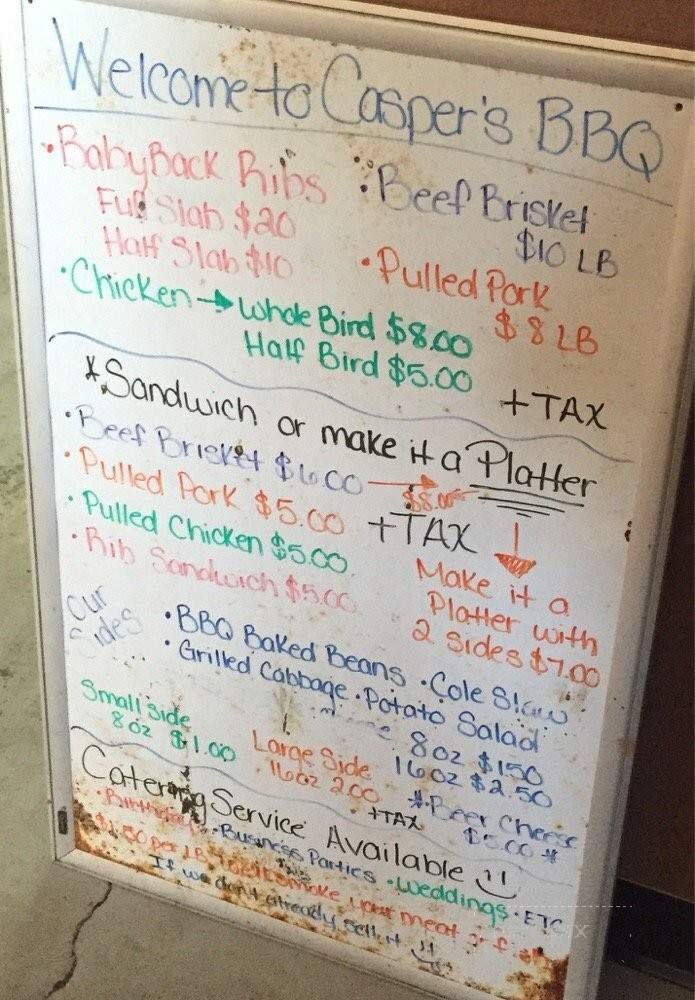 Welcome to Casper's BBQ
• BabyBack Ribs
Full Slab $20
Half Slab $10
• Beef Brisket
$10 LB
• Pulled Pork
$8 LB
• Chicken → Whole Bird $8.00
Half Bird $5.00
+TAX
*Sandwich or make it a Platter
• Beef Brisket $6.00 → $8.00
• Pulled Pork $5.00
• Pulled Chicken $5.00
• Rib Sandwich $5.00
+TAX
Make it a
Platter with
2 Sides $7.00
Our
Sides
• BBQ Baked Beans • Cole Slaw
• Grilled Cabbage • Potato Salad
Small side
8oz $1.00
Large Side
16oz 2.00
+TAX
8oz $1.50
16oz $2.50
*Beer Cheese
$5.00*
Catering Service Available
• Birthdays • Business Parties • Weddings • ETC
per LB smoke your meat
If we don't already sell it